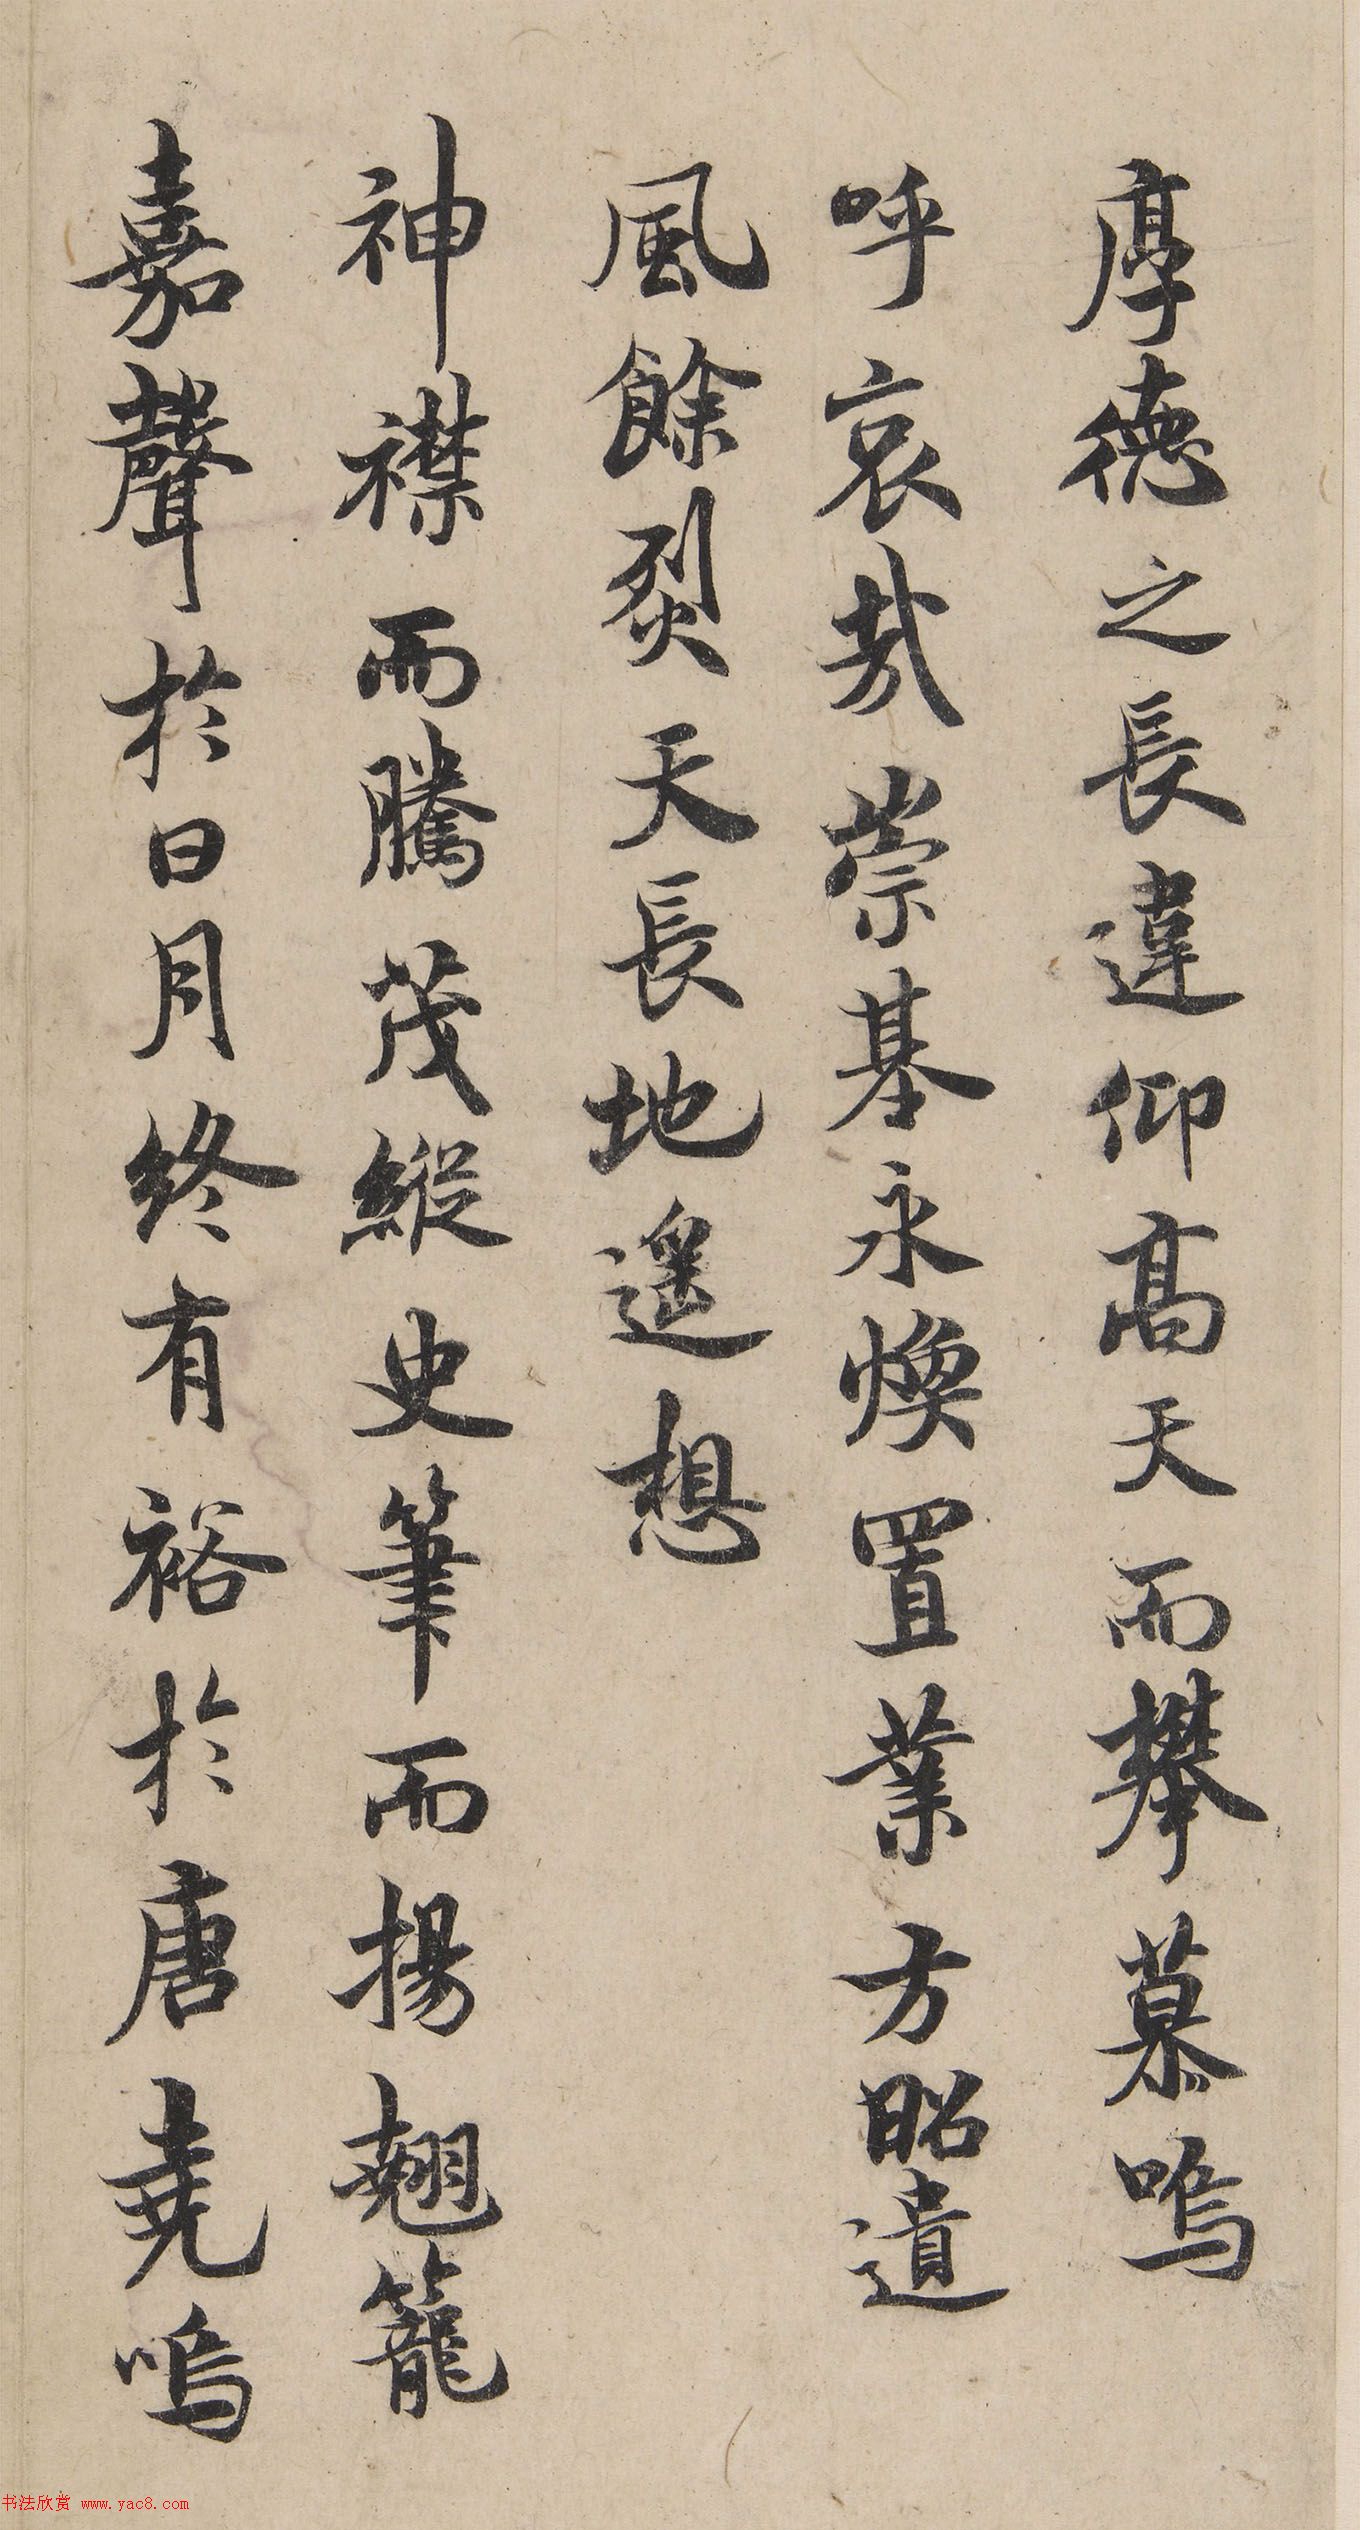 厚德之長違仰高天而攀慕嗚
呼哀哉崇基永煥置業方昭遺
風餘烈天長地遥想
神襟而騰茂縱史筆而揚翹籠
嘉聲於日月終有裕於唐堯嗚
书法欣赏 www.yac8.com